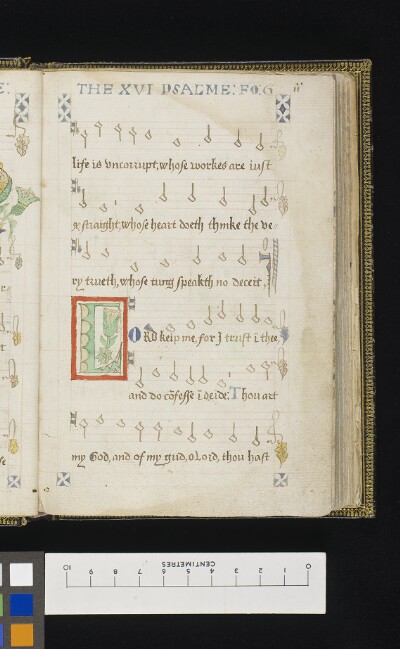 THE XVI PSALME: FO: 6
life is vncorrupt, whose workes are iust
& straight, whose heart doeth thinke the ve
ry trueth, whose tung speakth no deceit.
LORD keip me, for I trust ī thee,
and do cōfesse ī deide. Thou art
my God, and of my gud, o Lord, thou hast
CENTIMETRES
10 9 8 7 6 5 4 3 2 1 0